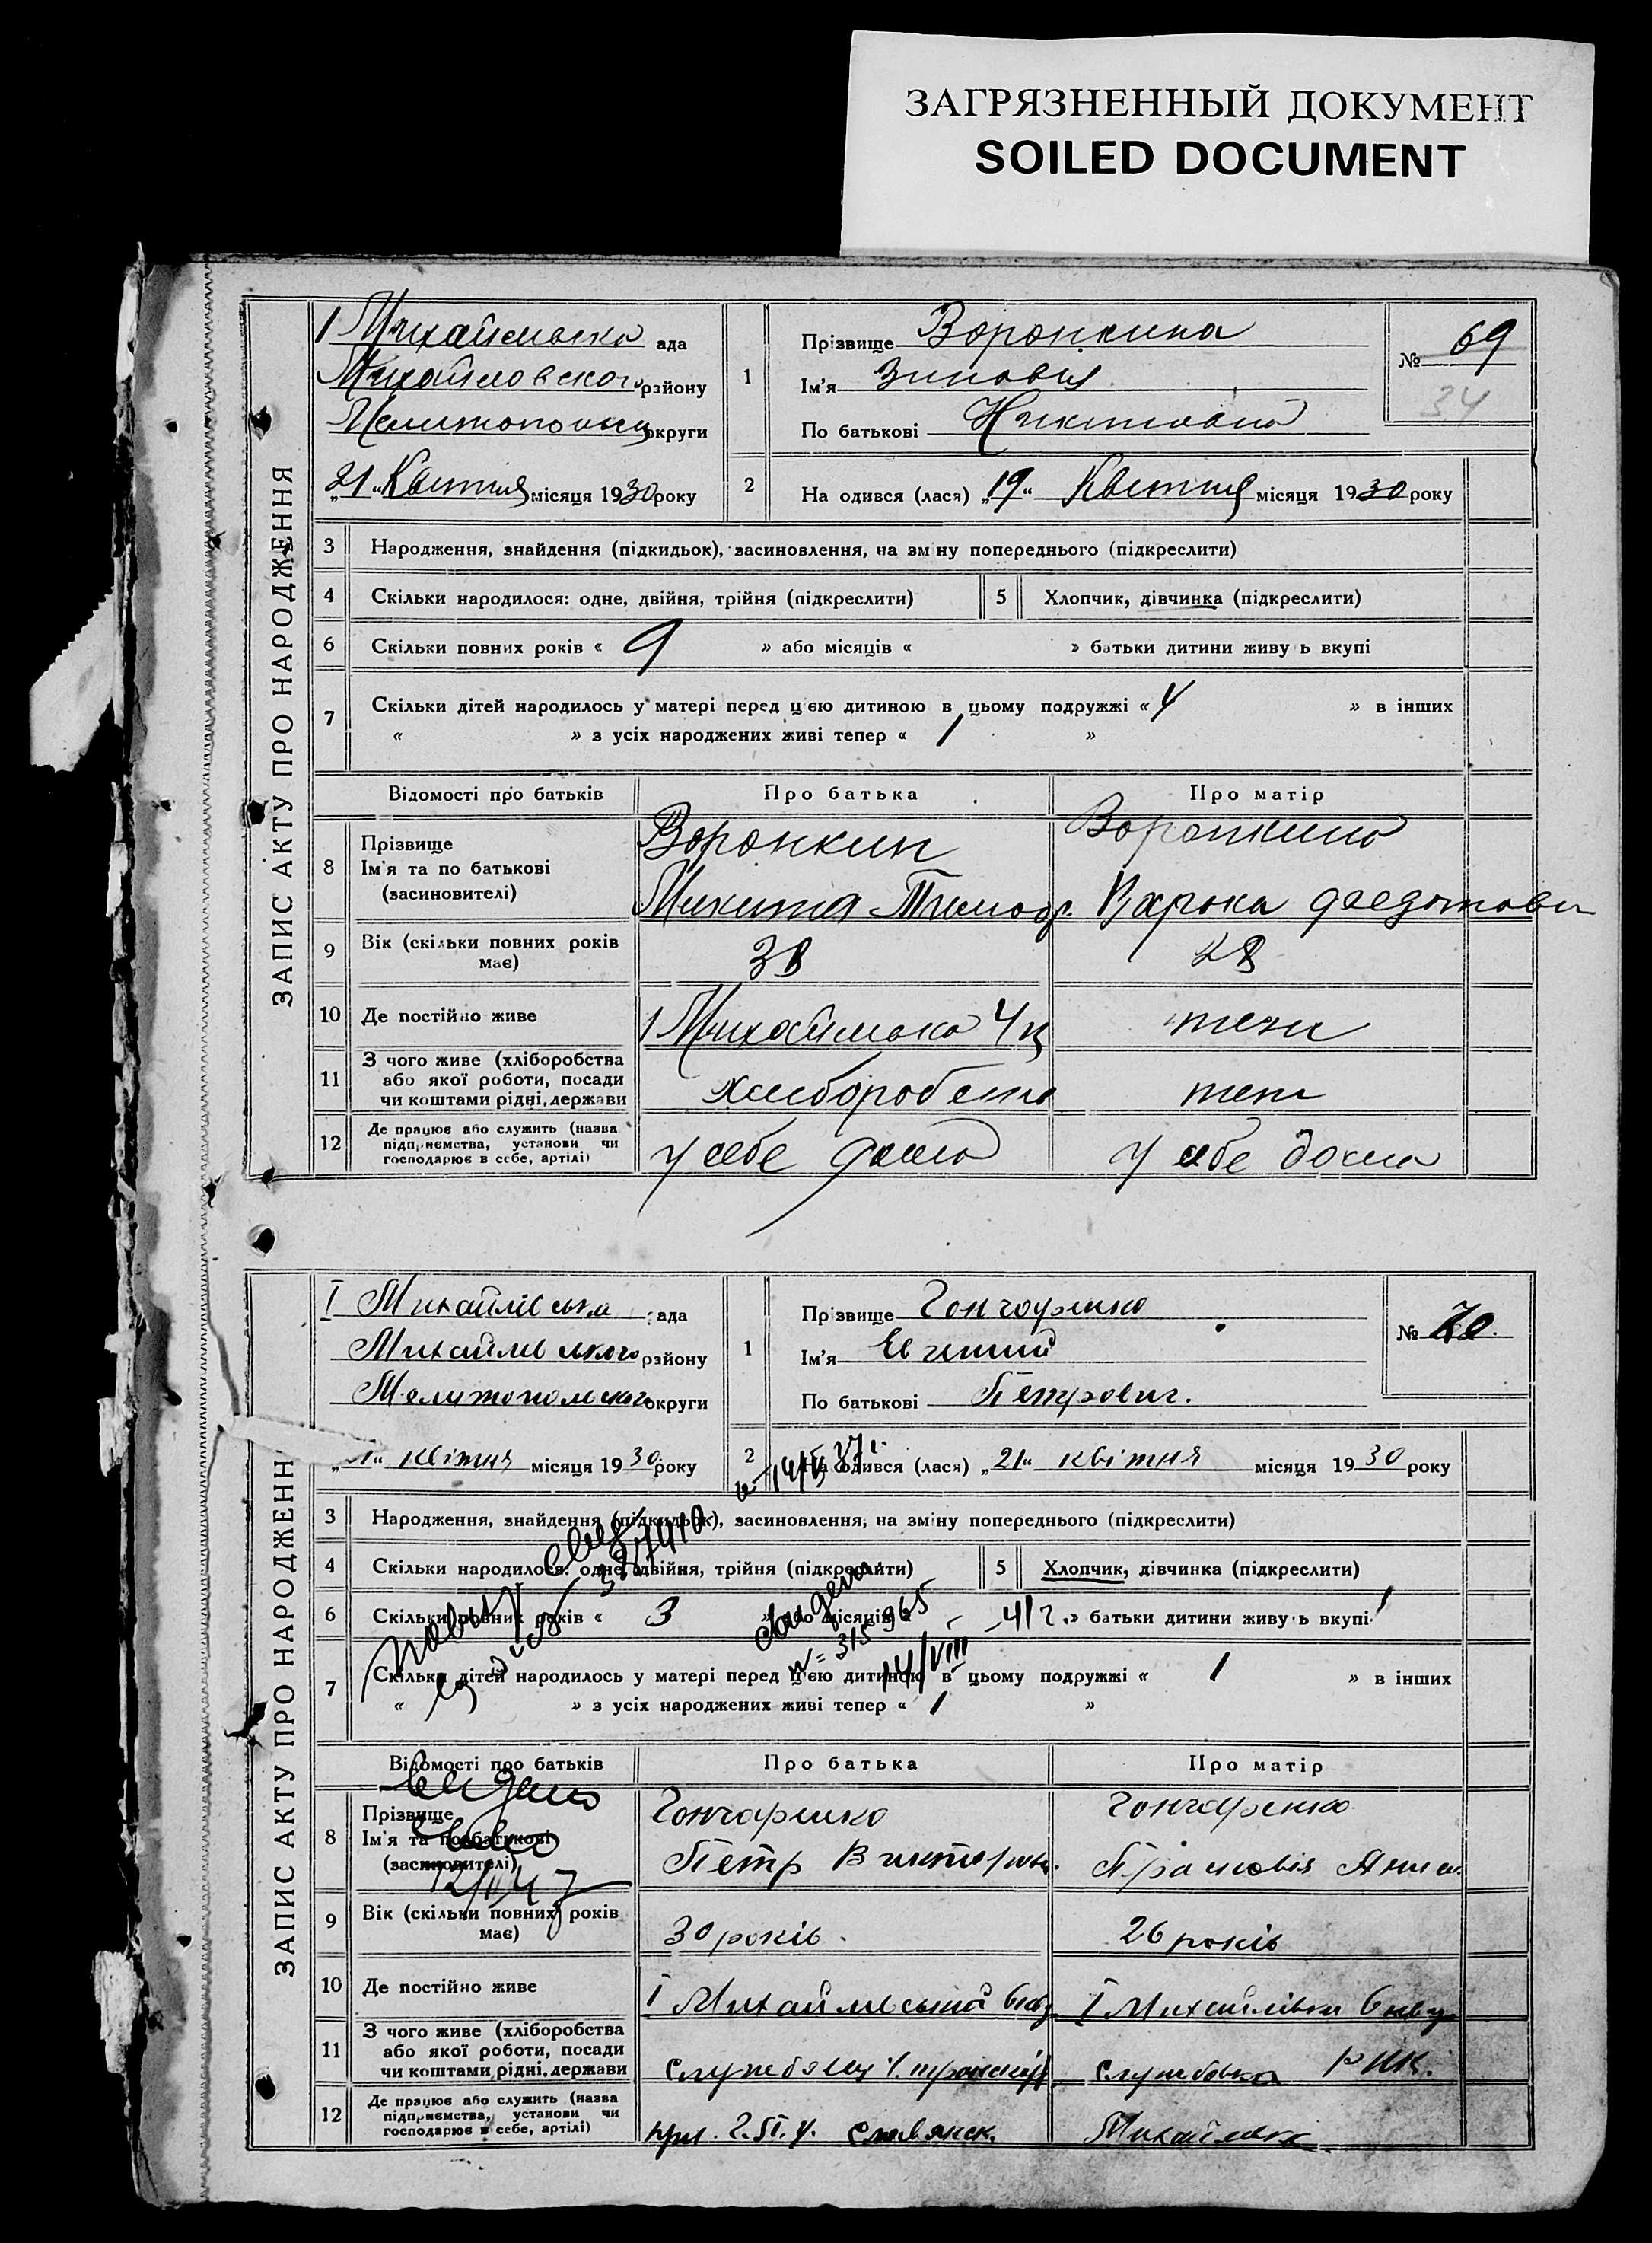 ЗАГРЯЗНЕННЫЙ ДОКУМЕНТ
SOILED DOCUMENT
ЗАПИС АКТУ ПРО НАРОДЖЕННЯ
ада
Михайловского району
округи
„21“ Квітня місяця 1930 року
1
Прізвище Воронкина
Ім'я Зиновия
По батькові Никитовна
№ 69
34
2
На одився (лася) „19“ Квітня місяця 1930 року
3 Народження, знайдення (підкидьок), засиновлення, на зм ну попереднього (підкреслити)
4 Скільки народилося: одне, двійня, трійня (підкреслити)
5 Хлопчик, дівчинка (підкреслити)
6 Скільки повних років « 9 » або місяців « » батьки дитини живу ь вкупі
7 Скільки дітей народилось у матері перед ц єю дитиною в цьому подружжі « 4 » в інших
« » з усіх народжених живі тепер « 1 »
Відомості про батьків Про батька Про матір
8 Прізвище
Ім'я та по батькові
(засиновителі)
Воронкин
Микита
Воронкина
9 Вік (скільки повних років
має)
10 Де постійно живе
11 З чого живе (хліборобства
або якої роботи, посади
чи коштами рідні, держави
12 Де працює або служить (назва
підприємства, установи чи
господарює в себе, артілі)
у себе дома
у себе дома
ЗАПИС АКТУ ПРО НАРОДЖЕНН
І Михайлівська ада
Михайлівського району
Мелитопольського округи
квітня місяця 1930 року
1
Пр звище Гончаренко
Ім'я Евгений
По батькові Петрович.
№ 70.
2
На одився (лася) „21“ квітня місяця 1930 року
3 Народження, знайдення (підкидьок), засиновлення, на зміну попереднього (підкреслити)
4 Скільки народилося: одне, двійня, трійня (підкреслити)
5 Хлопчик, дівчинка (підкреслити)
6 Скільки повних років « 3 » або місяців « » батьки дитини живу ь вкупі
7 Скільки дітей народилось у матері перед ц єю дитиною в цьому подружжі « 1 » в інших
« » з усіх народжених живі тепер « 1 »
Відомості про батьків Про батька Про матір
8 Прізвище
Ім'я та по батькові
(засиновителі)
Гончаренко
Петр
Гончаренко
9 Вік (скільки повних років
має)
30 років.
26 років
10 Де постійно живе
11 З чого живе (хліборобства
або якої роботи, посади
чи коштами рідні, держави
РИК.
12 Де працює або служить (назва
підприємства, установи чи
господарює в себе, артілі)
Славянск.
Михайлівка